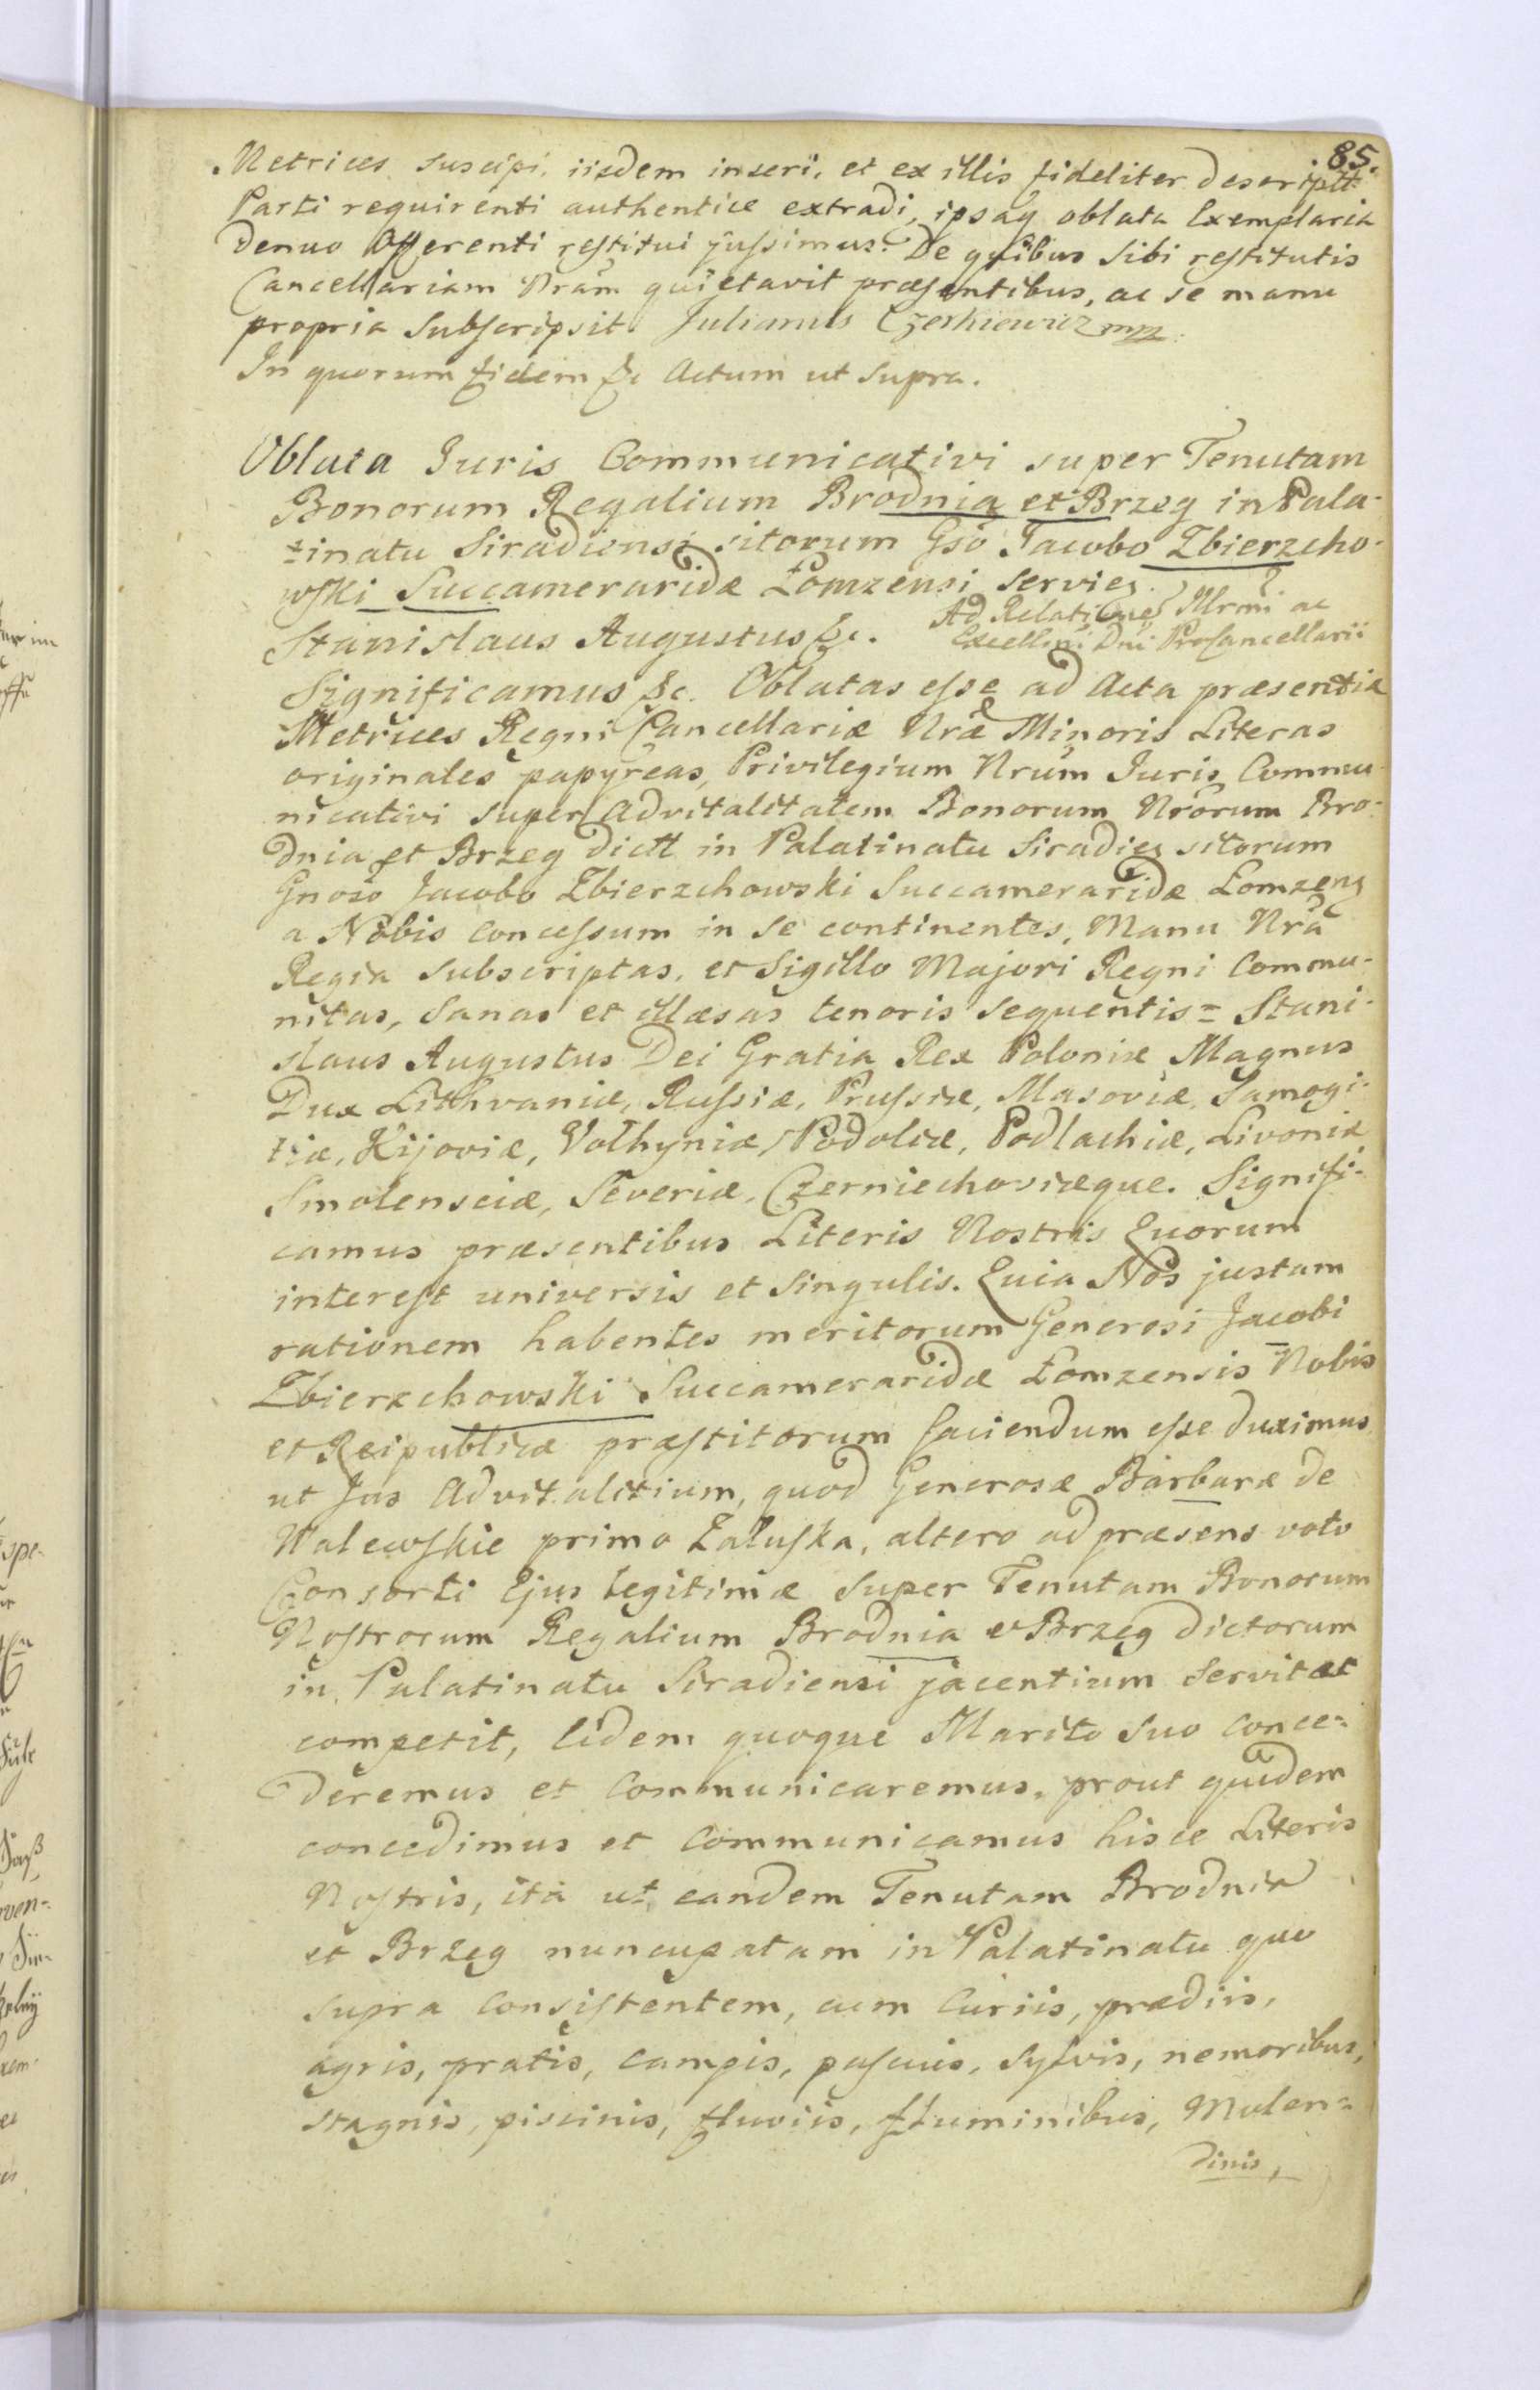 85.
Metrices suscipi, iisdem inseri, et ex illis fideliter descriptt:
Parti requirenti authentice extradi, ipsaq oblata Exemplaria
denuo Offerenti restitui jussimus. De quibus Sibi restitutis
Cancellariam Nram quietavit præsentibus, ac se manu
propria Subscripsit. Julianus Czerkiewicz mpp.
In quorum fidem &c Actum ut Supra.
Oblata Juris Communicativi super Tenutam
Bonorum Regalium Brodnia et Brzeg in Pala-
tinatu Siradiensi sitorum Gso Jacobo Zbierzcho-
wski Succameraridæ Łomzensi servieñ.
Ad Relationē Illrmi ac
Stanislaus Augustus &c.
Excellmi Dni ProCancellarii
Significamus &c. Oblatas esse ad Acta præsentia
Metrices Regni Cancellariæ Nræ Minoris Literas
originales papyreas, Privilegium Nrum Juris Commu-
nicativi super Advitalitatem Bonorum Nrorum Bro-
dnia et Brzeg dictt in Palatinatu Siradieñ sitorum
Gnoso Jacobo Zbierzchowski Succameraridæ Łomzeñ
a Nobis concessum in se continentes, Manu Nra
Regia subscriptas, et Sigillo Majori Regni Commu-
nitas, Sanas et illæsas tenoris sequentis = Stani-
slaus Augustus Dei Gratia Rex Poloniæ Magnus
Dux Lithvaniæ, Russiæ, Prussiæ, Masoviæ, Samogi-
tiæ, Kijoviæ, Volhyniæ, Podoliæ, Podlachiæ, Livoniæ
Smolensciæ, Severiæ, Czerniechoviæque. Signifi-
camus præsentibus Literis Nostris Quorum
interest universis et singulis. Quia Nos justam
rationem habentes meritorum Generosi Jacobi
Zbierzchowski Succameraridæ Łomzensis Nobis
et Reipublicæ præstitorum faciendum esse duximus
ut Jus Advitalitium, quod Generosæ Barbaræ de
Walewskie primo Załuska, altero ad præsens voto
Consorti Ejus legitimæ super Tenutam Bonorum
Nostrorum Regalium Brodnia et Brzeg dictorum
in Palatinatu Siradiensi jacentium servit et
competit, Eidem quoque Marito Suo conce-
deremus et Communicaremus, prout quidem
concedimus et Communicamus hisce Literis
Nostris, ita ut eandem Tenutam Brodnia
et Brzeg nuncupatam in Palatinatu quo
supra consistentem, cum Curiis, prædiis,
agris, pratis, campis, pascuis, sylvis, nemoribus,
stagnis, piscinis, fluviis, fluminibus, Molen-
dinis,